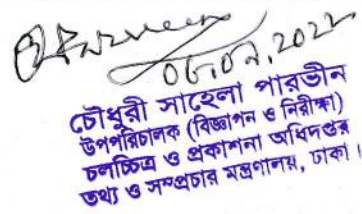 ০৬.০৭.২০২২
চৌধুরী সাহেলা পারভীন
উপপরিচালক (বিজ্ঞাপন ও নিরীক্ষা)
চলচ্চিত্র ও প্রকাশনা অধিদপ্তর
তথ্য ও সম্প্রচার মন্ত্রণালয়, ঢাকা।